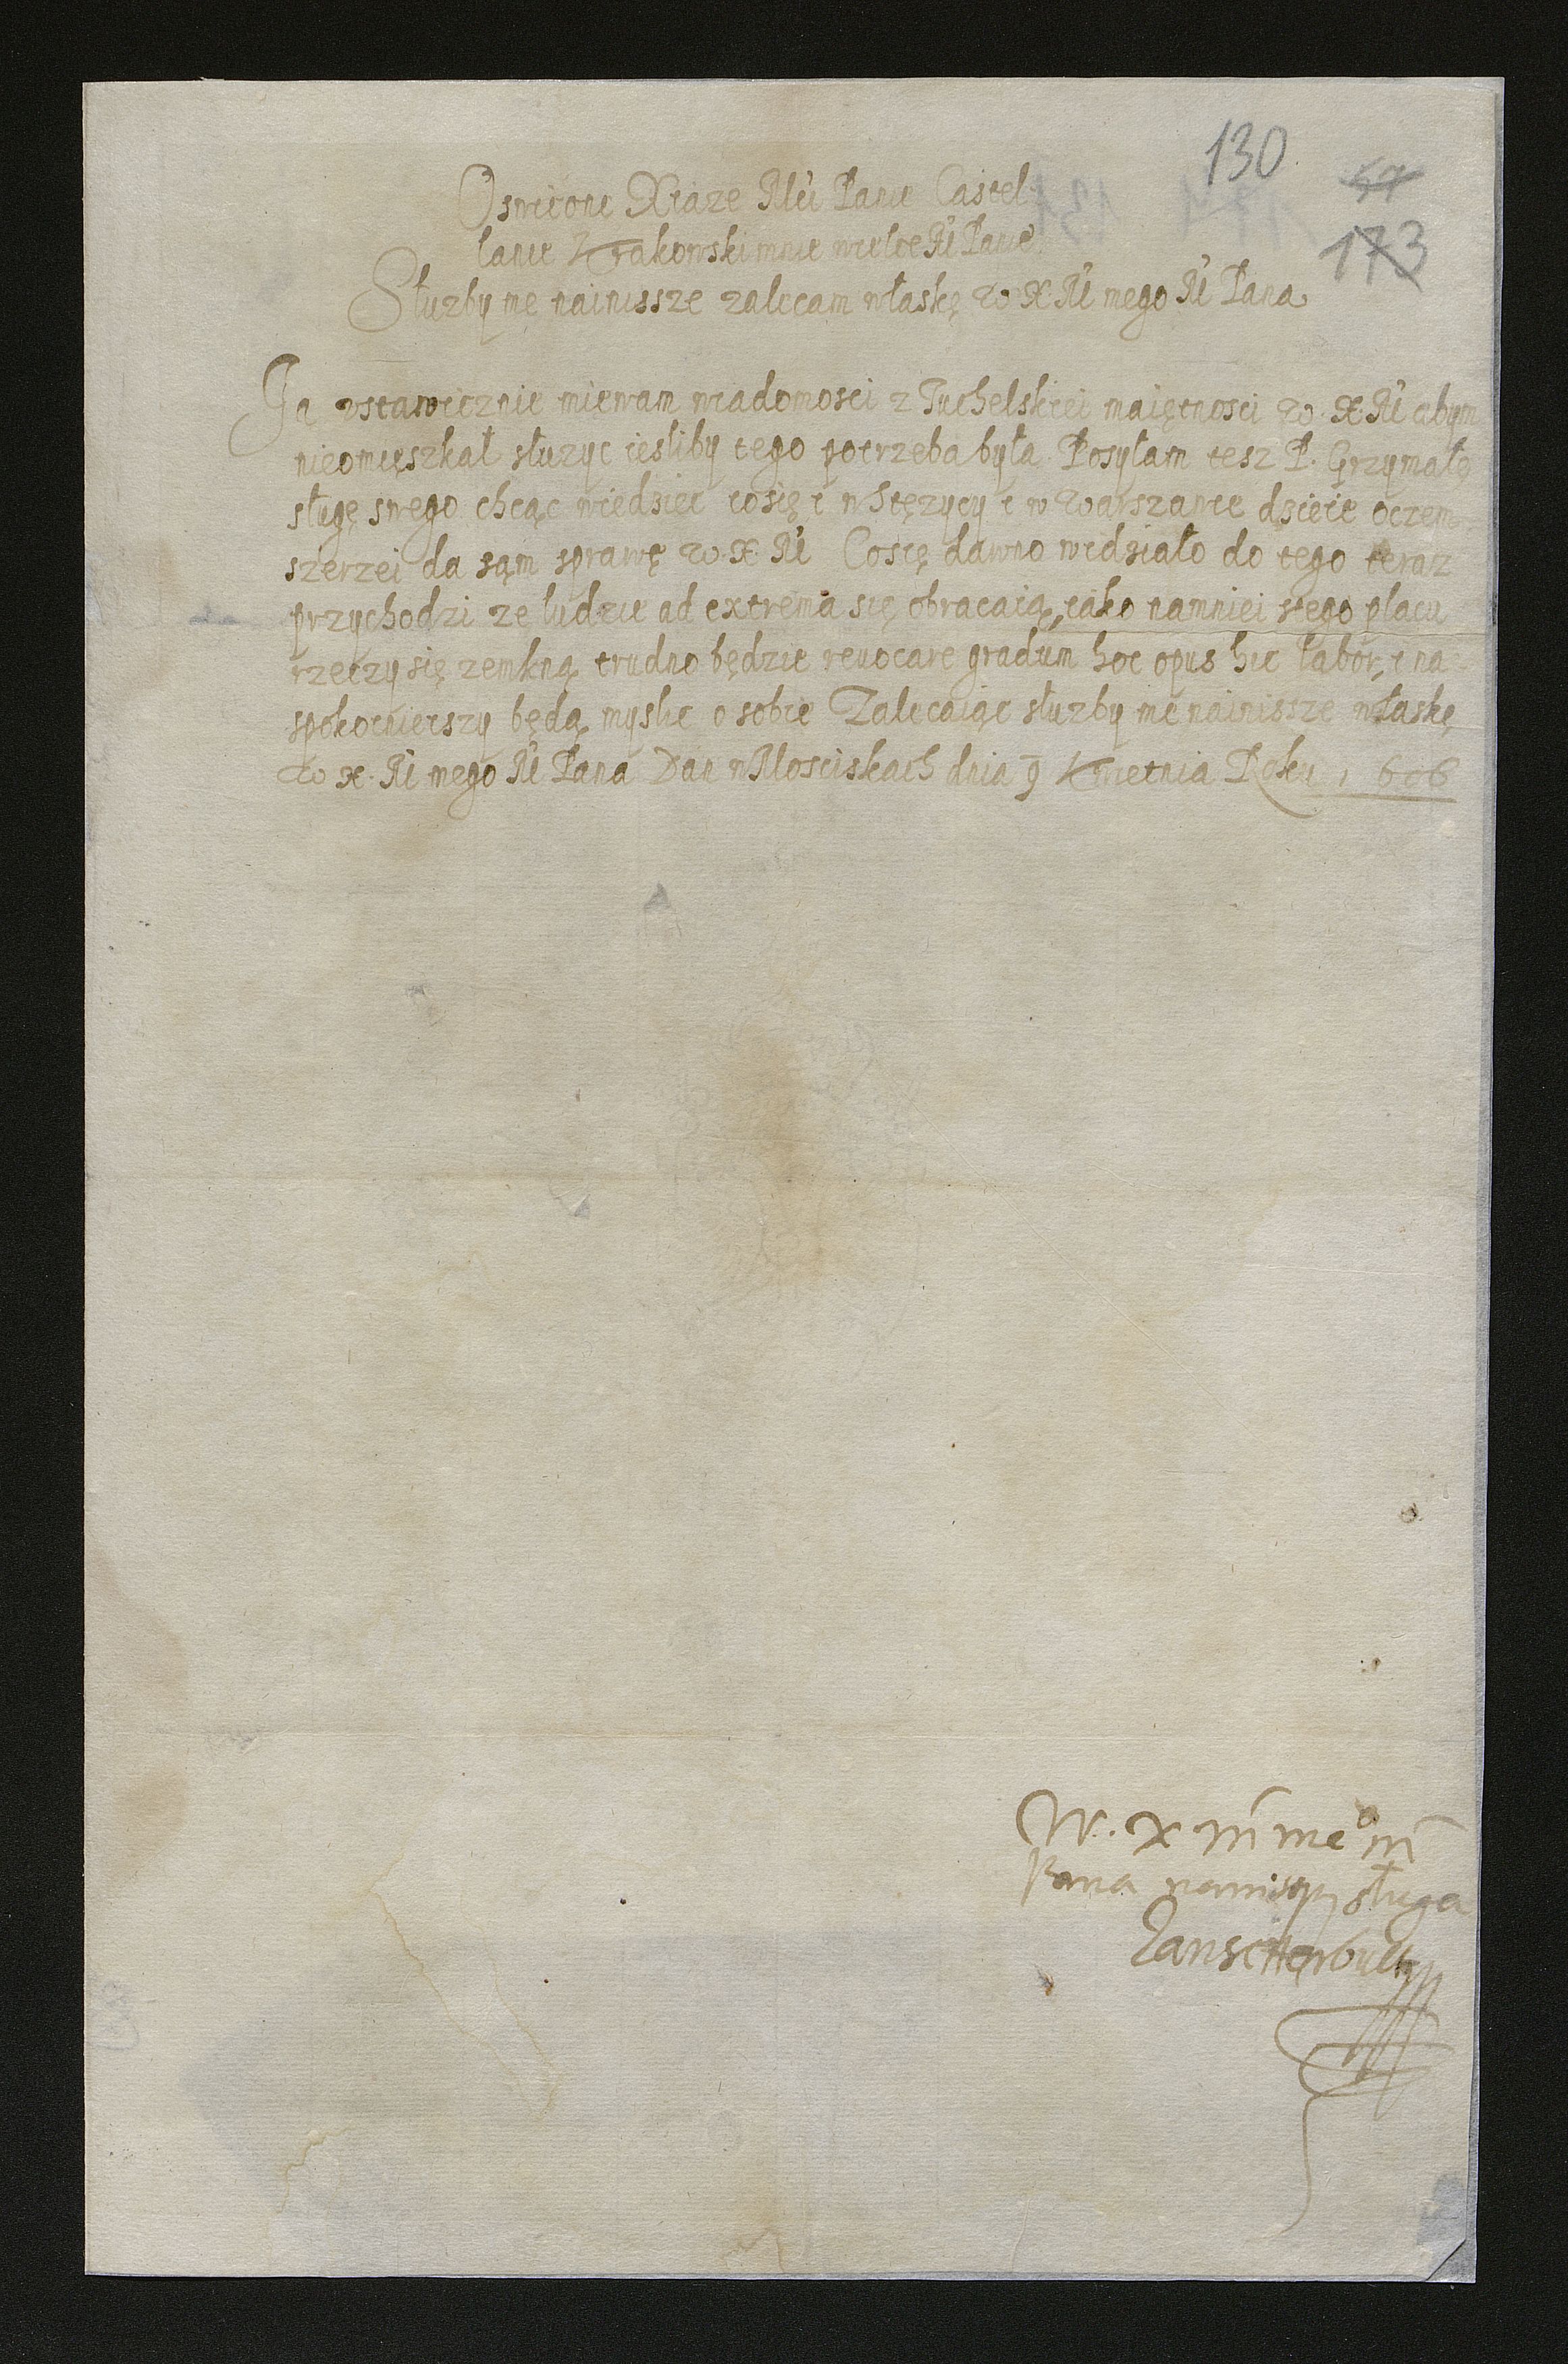 130
57
173
Oswiecone Xiąze Mći Panie Castel
lanie Krakowski mnie wielce Mći Panie
Służby me nainissze zalecam właskę W X Mći mego Mći Pana
Ja vstawicznie miewam wiadomosci z Tuchelskiei maiętnosci W. X Mći abym
nieomieszkał służyc iesliby tego potrzeba była Posyłam tesz P. Grzymałę
sługę swego chcąc wiedziec cosię i wStęzycy i w Warszawie dzieie oczem
szerzei da sąm sprawę W. X. Mći Cosię dawno widziało do tego teraz
przychodzi ze ludzie ad extrema się obracaią, iako namniei stego placu
rzeczy się zemkną trudno będzie reuocare gradum hoc opus hic labor, i na
spokoinieiszy będą myslic o sobie Zalecaiąc służby me nainissze właskę
W X. Mći mego Mći Pana Dan wMosciskach dnia 9 Kwietnia Roku 1606
W. X M meo M
Pana nanisszy sługa